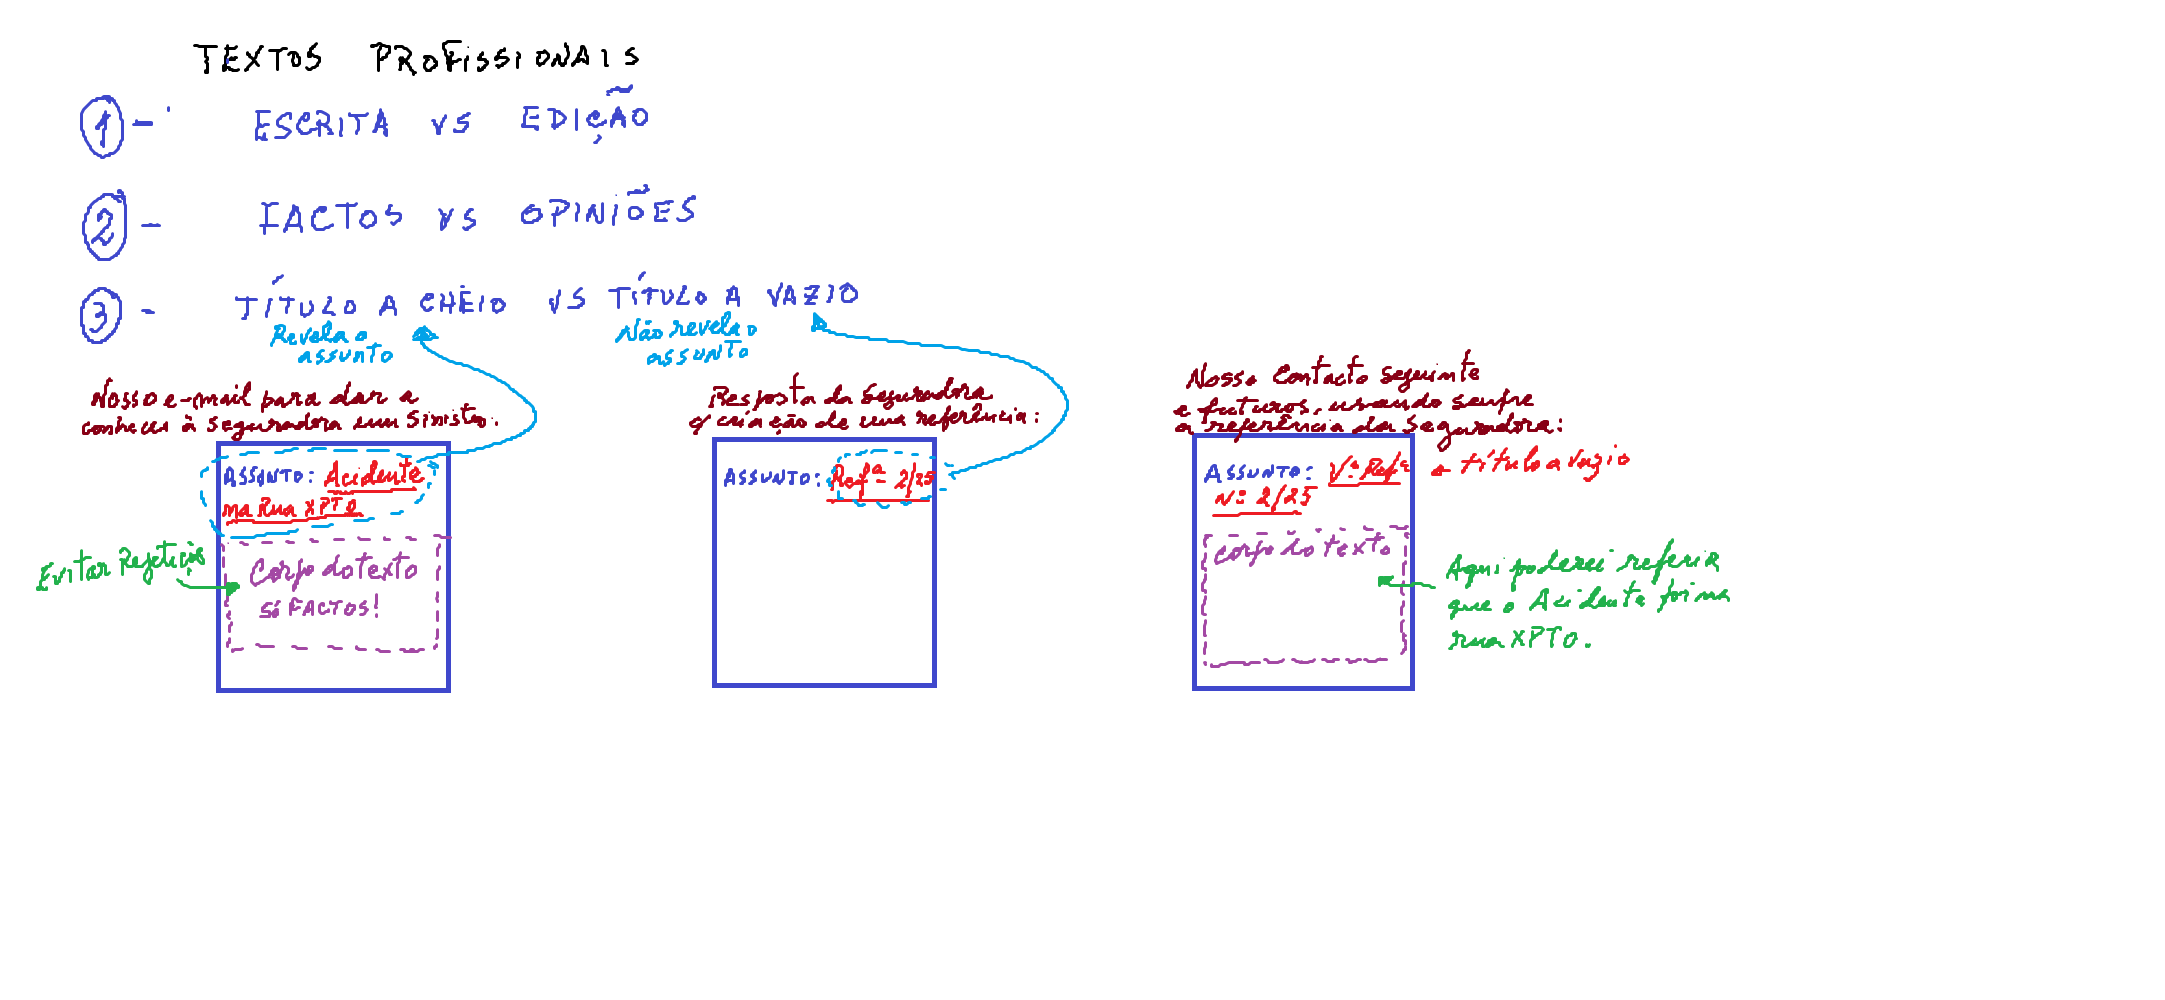 TEXTOS PROFISSIONAIS
1 - ESCRITA VS EDIÇÃO
2 - FACTOS VS OPINIÕES
3 - TÍTULO A CHEIO VS TÍTULO A VAZIO
Revela o
assunto
Não revela o
assunto
Nosso e-mail para dar a
conhecer à Seguradora um Sinistro.
ASSUNTO: Acidente
na Rua XPTO
Corpo do texto
Só FACTOS!
Evitar Repetição
Resposta da Seguradora
c/ criação de uma referência:
ASSUNTO: Refª 2/25
Nosso Contacto seguinte
e futuros, usando sempre
a referência da Seguradora:
ASSUNTO: Vª Refª
Nº 2/25
título a vazio
Corpo do texto
Aqui poderei referir
que o Acidente foi na
rua XPTO.